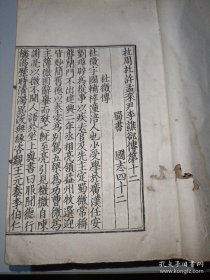 杜周杜許孟來尹李譙郤傳第十二
蜀書 國志四十二
杜微傳
杜微字國輔梓潼涪人也少受學於廣漢任安
劉璋辟為從事以疾去官及先主定蜀微常稱
聾閉門不出建興二年丞相亮領益州牧選迎
皆妙簡舊德以秦宓為別駕五梁為功曹微為
主簿微固辭轝而致之既致亮引見微微自陳
謝亮以微不聞人語於坐上與書曰服聞德行
飢渴歷時清濁異流無緣咨覯王元泰李伯仁